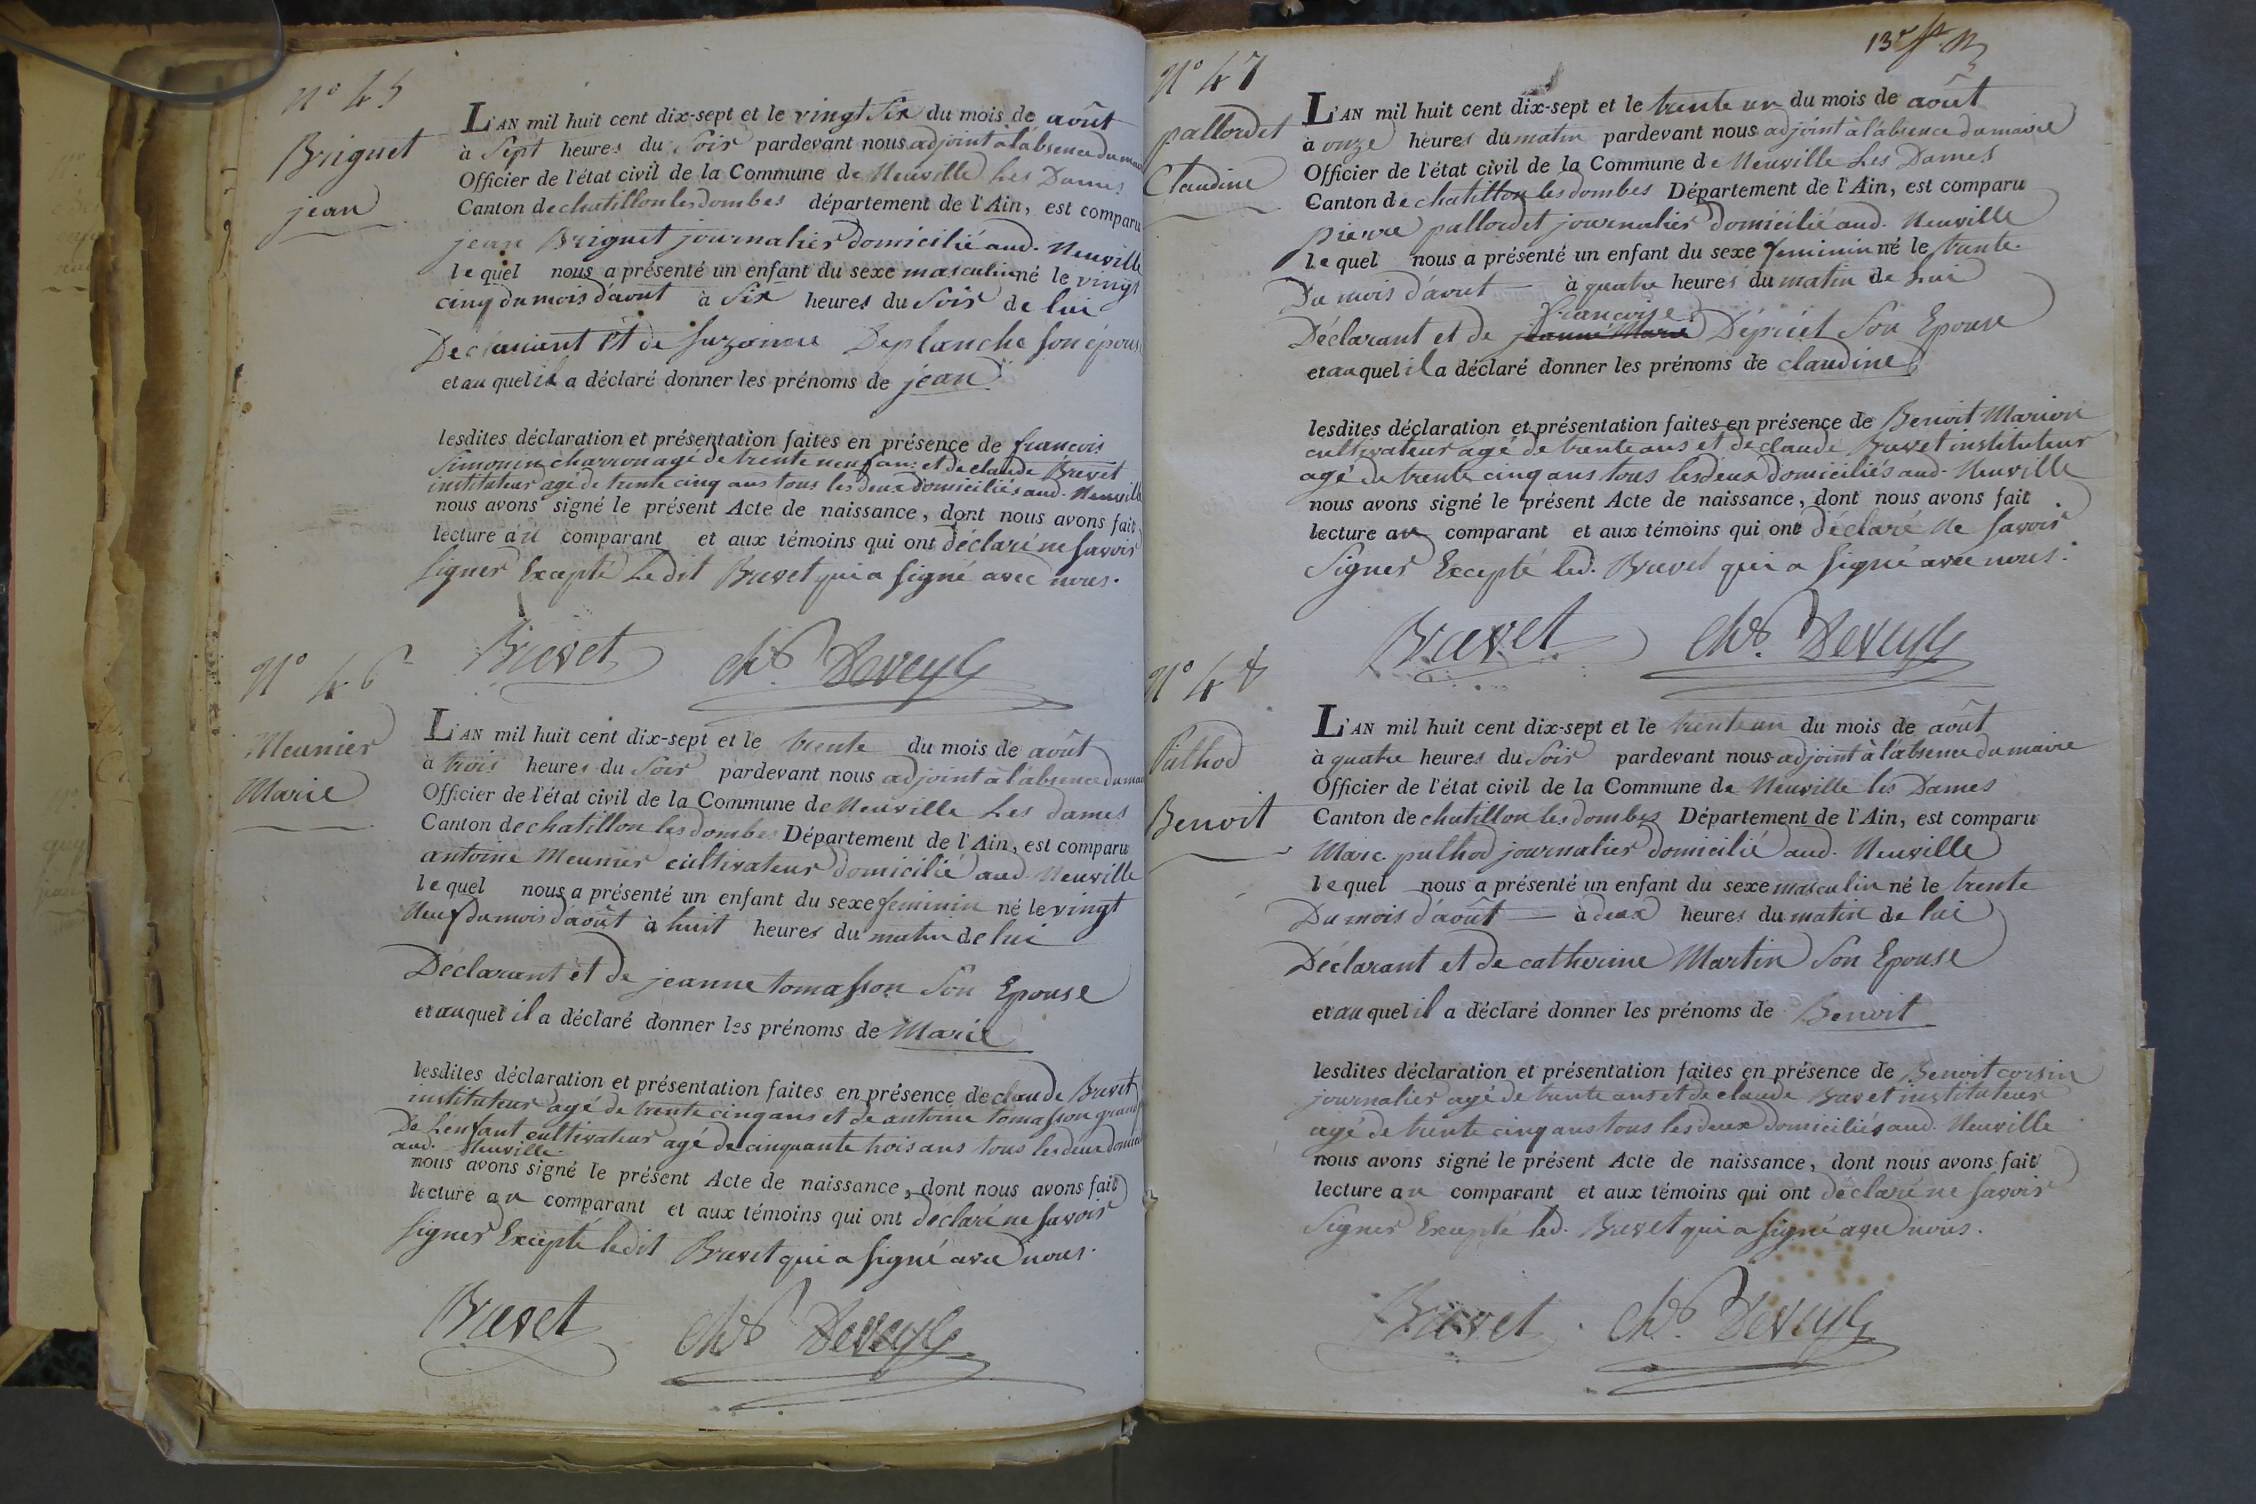 N° 45
Briguet
jean
L'AN mil huit cent dix-sept et le vingt six du mois de août
à sept heures du soir pardevant nous adjoint à l'absence du maire
Officier de l'état civil de la Commune de Neuville Les Dames
Canton de chatillon les dombes département de l'Ain, est comparu
jean Briguet journalier domicilié aud. Neuville
lequel nous a présenté un enfant du sexe masculin né le vingt
cinq du mois d'aout à six heures du soir de lui
Déclarant et de suzanne Deplanche son épouse
et au quel il a déclaré donner les prénoms de jean
lesdites déclaration et présentation faites en présence de francois
Simonin charron agé de trente neuf ans et de claude Brevet
instituteur agé de trente cinq ans tous les deux domiciliés aud. Neuville
nous avons signé le présent Acte de naissance, dont nous avons fait
lecture au comparant et aux témoins qui ont déclaré ne savoir
signer Excepté Ledit Brevet qui a signé avec nous.
Brevet chs Deveyle
N° 46
Meunier
Marie
L'AN mil huit cent dix-sept et le trente du mois de août
à trois heures du soir pardevant nous adjoint à l'absence du maire
Officier de l'état civil de la Commune de Neuville Les dames
Canton de chatillon les dombes Département de l'Ain, est comparu
antoine Meunier cultivateur domicilié aud. Neuville
lequel nous a présenté un enfant du sexe feminin né le vingt
Neuf du mois d'août à huit heures du matin de lui
Déclarant et de jeanne tomasson son Epouse
et au quel il a déclaré donner les prénoms de Marie
lesdites déclaration et présentation faites en présence de claude Brevet
instituteur agé de trente cinq ans et de antoine tomasson grand
De L'enfant cultivateur agé de cinquante trois ans tous les deux
aud. Neuville.
nous avons signé le présent Acte de naissance, dont nous avons fait
lecture au comparant et aux témoins qui ont déclaré ne savoir
signer Excepté ledit Brevet qui a signé avec nous.
Brevet chs Deveyle
13e
N° 47
pallordet
Claudine
L'AN mil huit cent dix-sept et le trente un du mois de août
à onze heures du matin pardevant nous adjoint à l'absence du maire
Officier de l'état civil de la Commune de Neuville Les Dames
Canton de chatillon les dombes Département de l'Ain, est comparu
pierre pallordet journalier domicilié aud. Neuville
lequel nous a présenté un enfant du sexe feminin né le trente
Du mois d'aout à quatre heures du matin de Lui
francoise
Déclarant et de jeanne Marie Dépriet Son Epouse
et au quel il a déclaré donner les prénoms de claudine
lesdites déclaration et présentation faites en présence de Benoit Marion
cultivateur agé de trente ans et de claude Brevet instituteur
agé de trente cinq ans tous les deux domiciliés aud. Neuville
nous avons signé le présent Acte de naissance, dont nous avons fait
lecture au comparant et aux témoins qui ont déclaré Ne savoir
Signer Excepté led. Brevet qui a signé avec nous.
Brevet chs. Deveyle
N° 48
Pulhod
Benoit
L'AN mil huit cent dix-sept et le trente un du mois de août
à quatre heures du soir pardevant nous adjoint à l'absence du maire
Officier de l'état civil de la Commune de Neuville les Dames
Canton de chatillon les dombes Département de l'Ain, est comparu
Marc pulhod journalier domicilié aud. Neuville
lequel nous a présenté un enfant du sexe masculin né le trente
Du mois d'août à deux heures du matin de lui
Déclarant et de catherine Martin Son Epouse
et au quel il a déclaré donner les prénoms de Benoit
lesdites déclaration et présentation faites en présence de Benoit corsin
journalier agé de trente ans et de claude Brevet instituteur
agé de trente cinq ans tous les deux domiciliés aud. Neuville
nous avons signé le présent Acte de naissance, dont nous avons fait
lecture au comparant et aux témoins qui ont déclaré ne savoir
Signer Excepté led. Brevet qui a signé avec nous.
Brevet chs. Deveyle